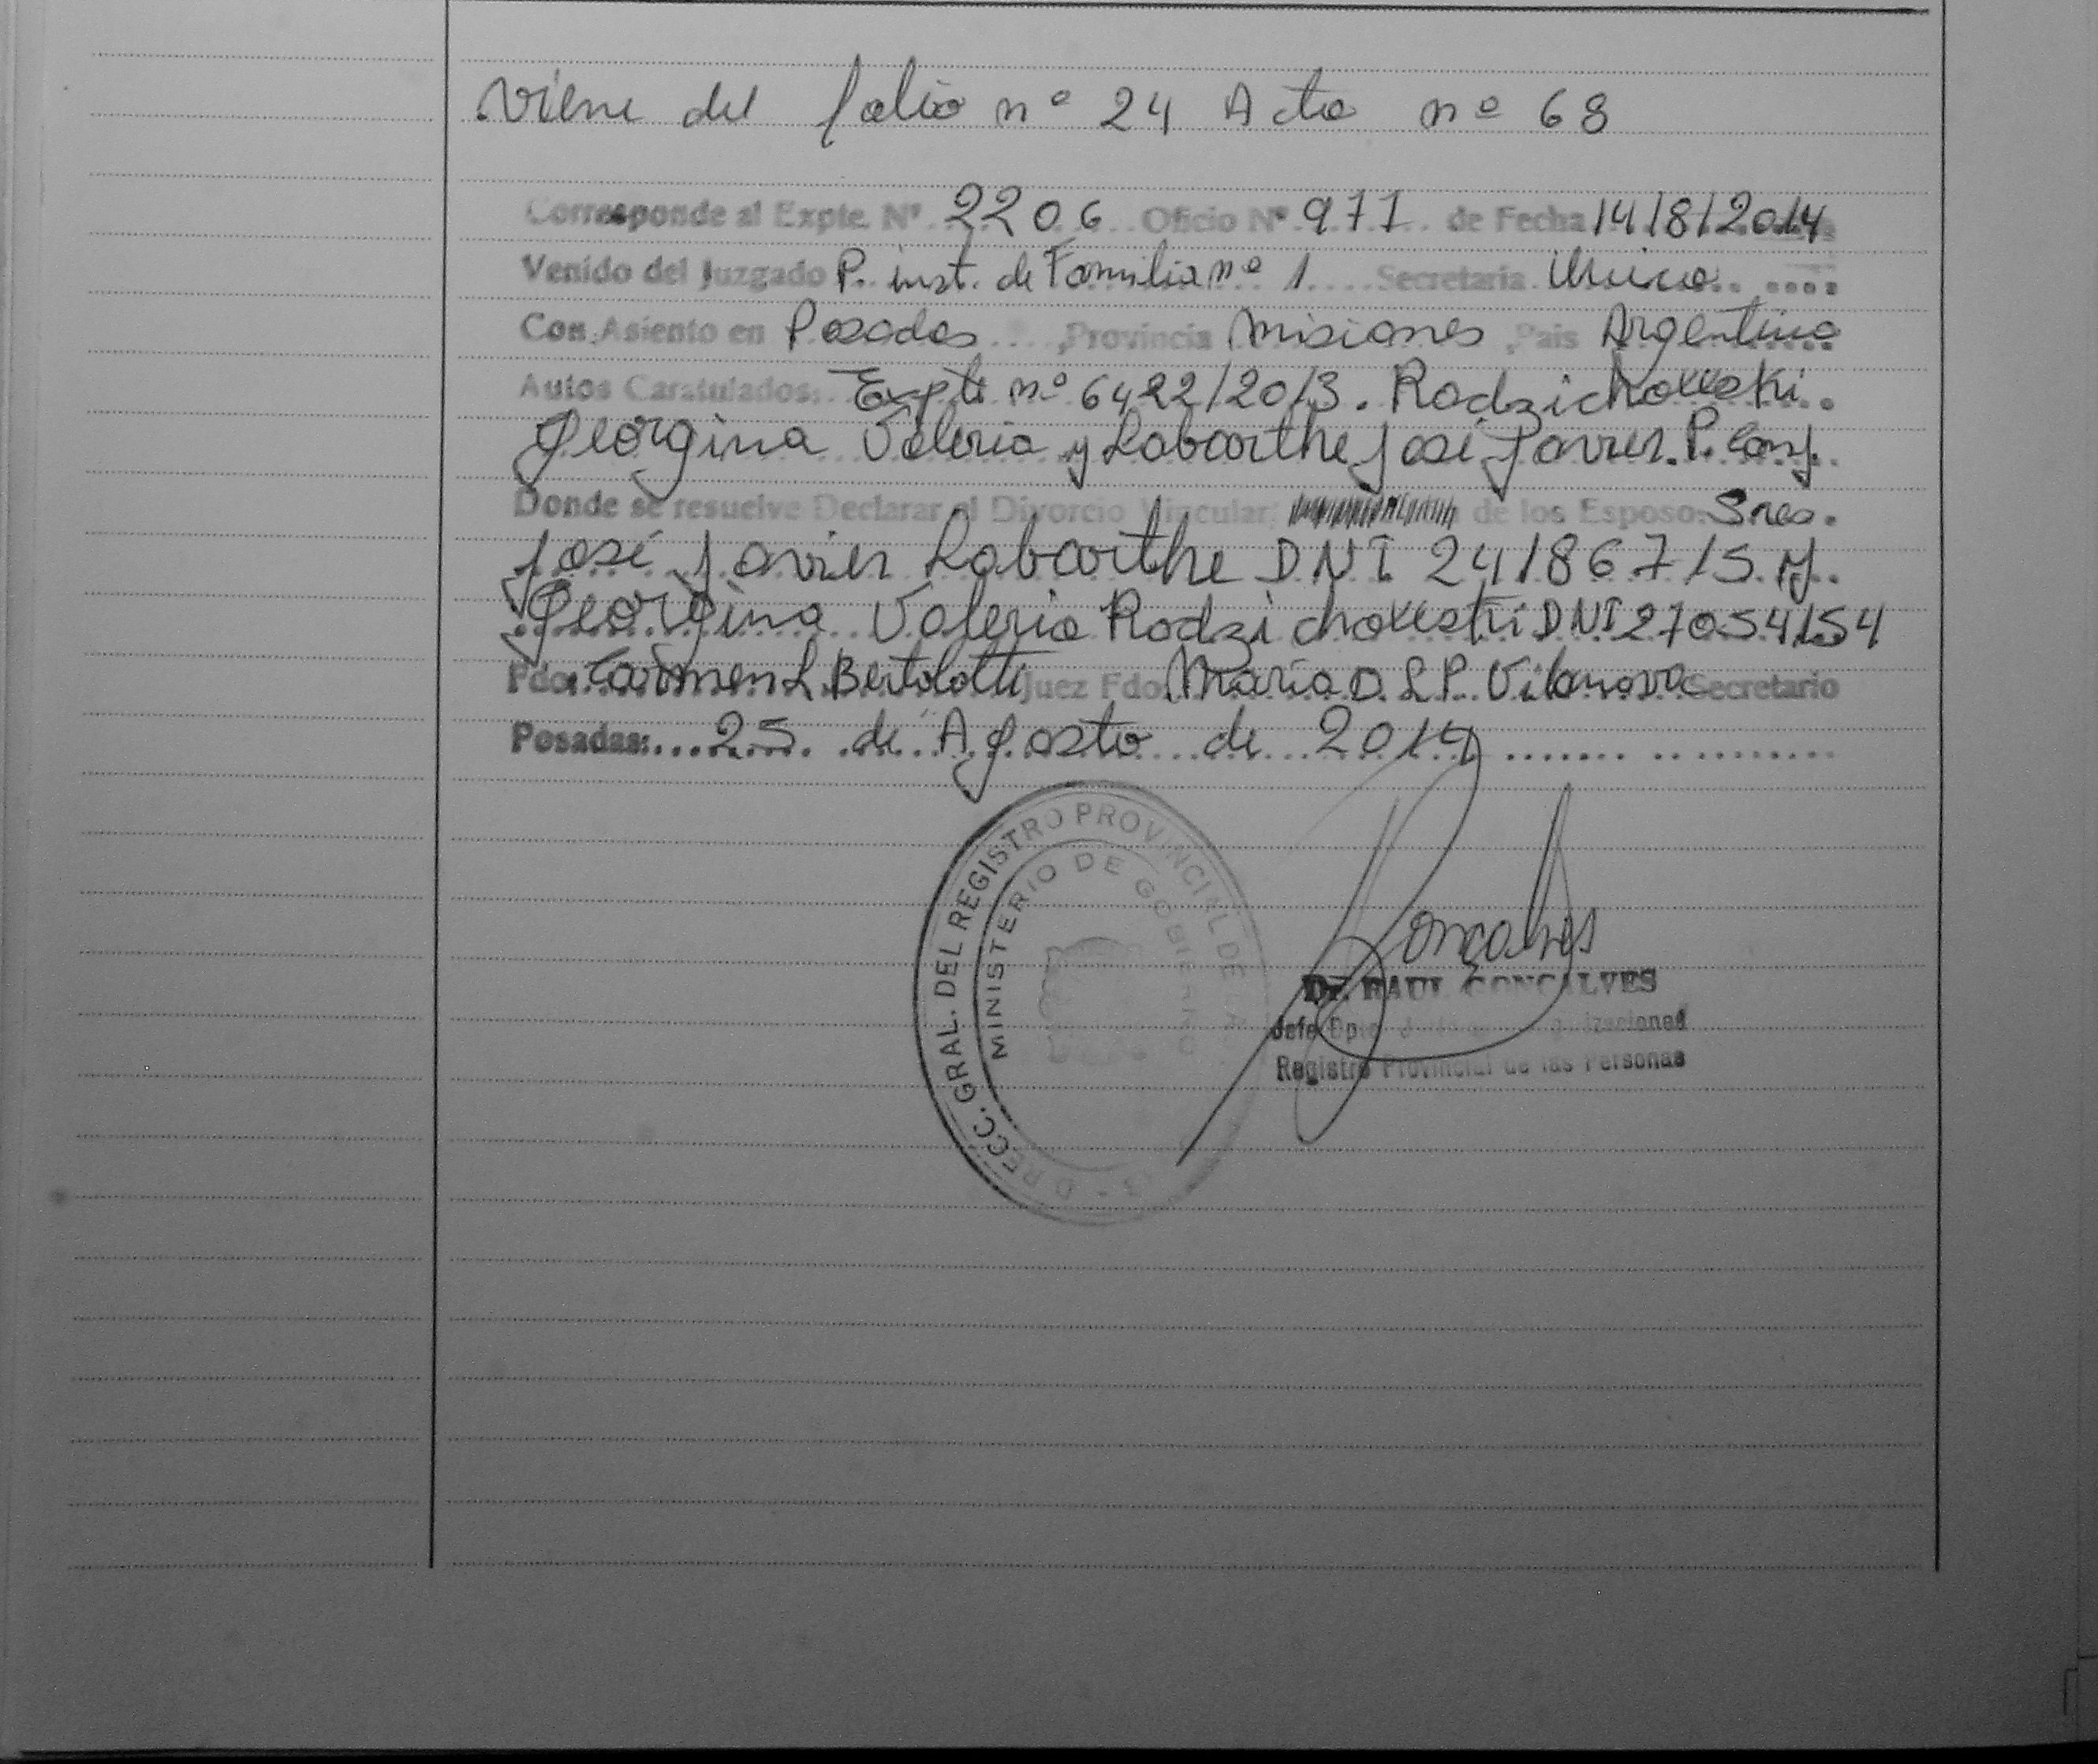 Viene del folio nº 24 Acta nº 68
Corresponde al Expte. Nº 2206 Oficio Nº 971 de Fecha 14/8/2014
Venido del Juzgado P. inst. de Familia nº 1 Secretaria Unica
Con Asiento en Posadas, Provincia Misiones, Pais Argentina
Autos Caratulados: Expte nº 6422/2013. Rodzichowski
Georgina Valeria y Labarthe José Javier. P. Conj.
Donde se resuelve Declarar el Divorcio Vincular: de los Esposo: Sres.
José Javier Labarthe DNI 24186715 y
Georgina Valeria Rodzichowski DNI 27054154
Fdo: Carmen L Bertolotti Juez Fdo: María D. L P. Vilanova Secretario
Posadas: 25 de Agosto de 2014
DIRECC. GRAL. DEL REGISTRO PROVINCIAL DE
MINISTERIO DE GOBIERNO
Gonçalves
Dr. RAUL GONÇALVES
Jefe Dpto.
Registro Provincial de las Personas